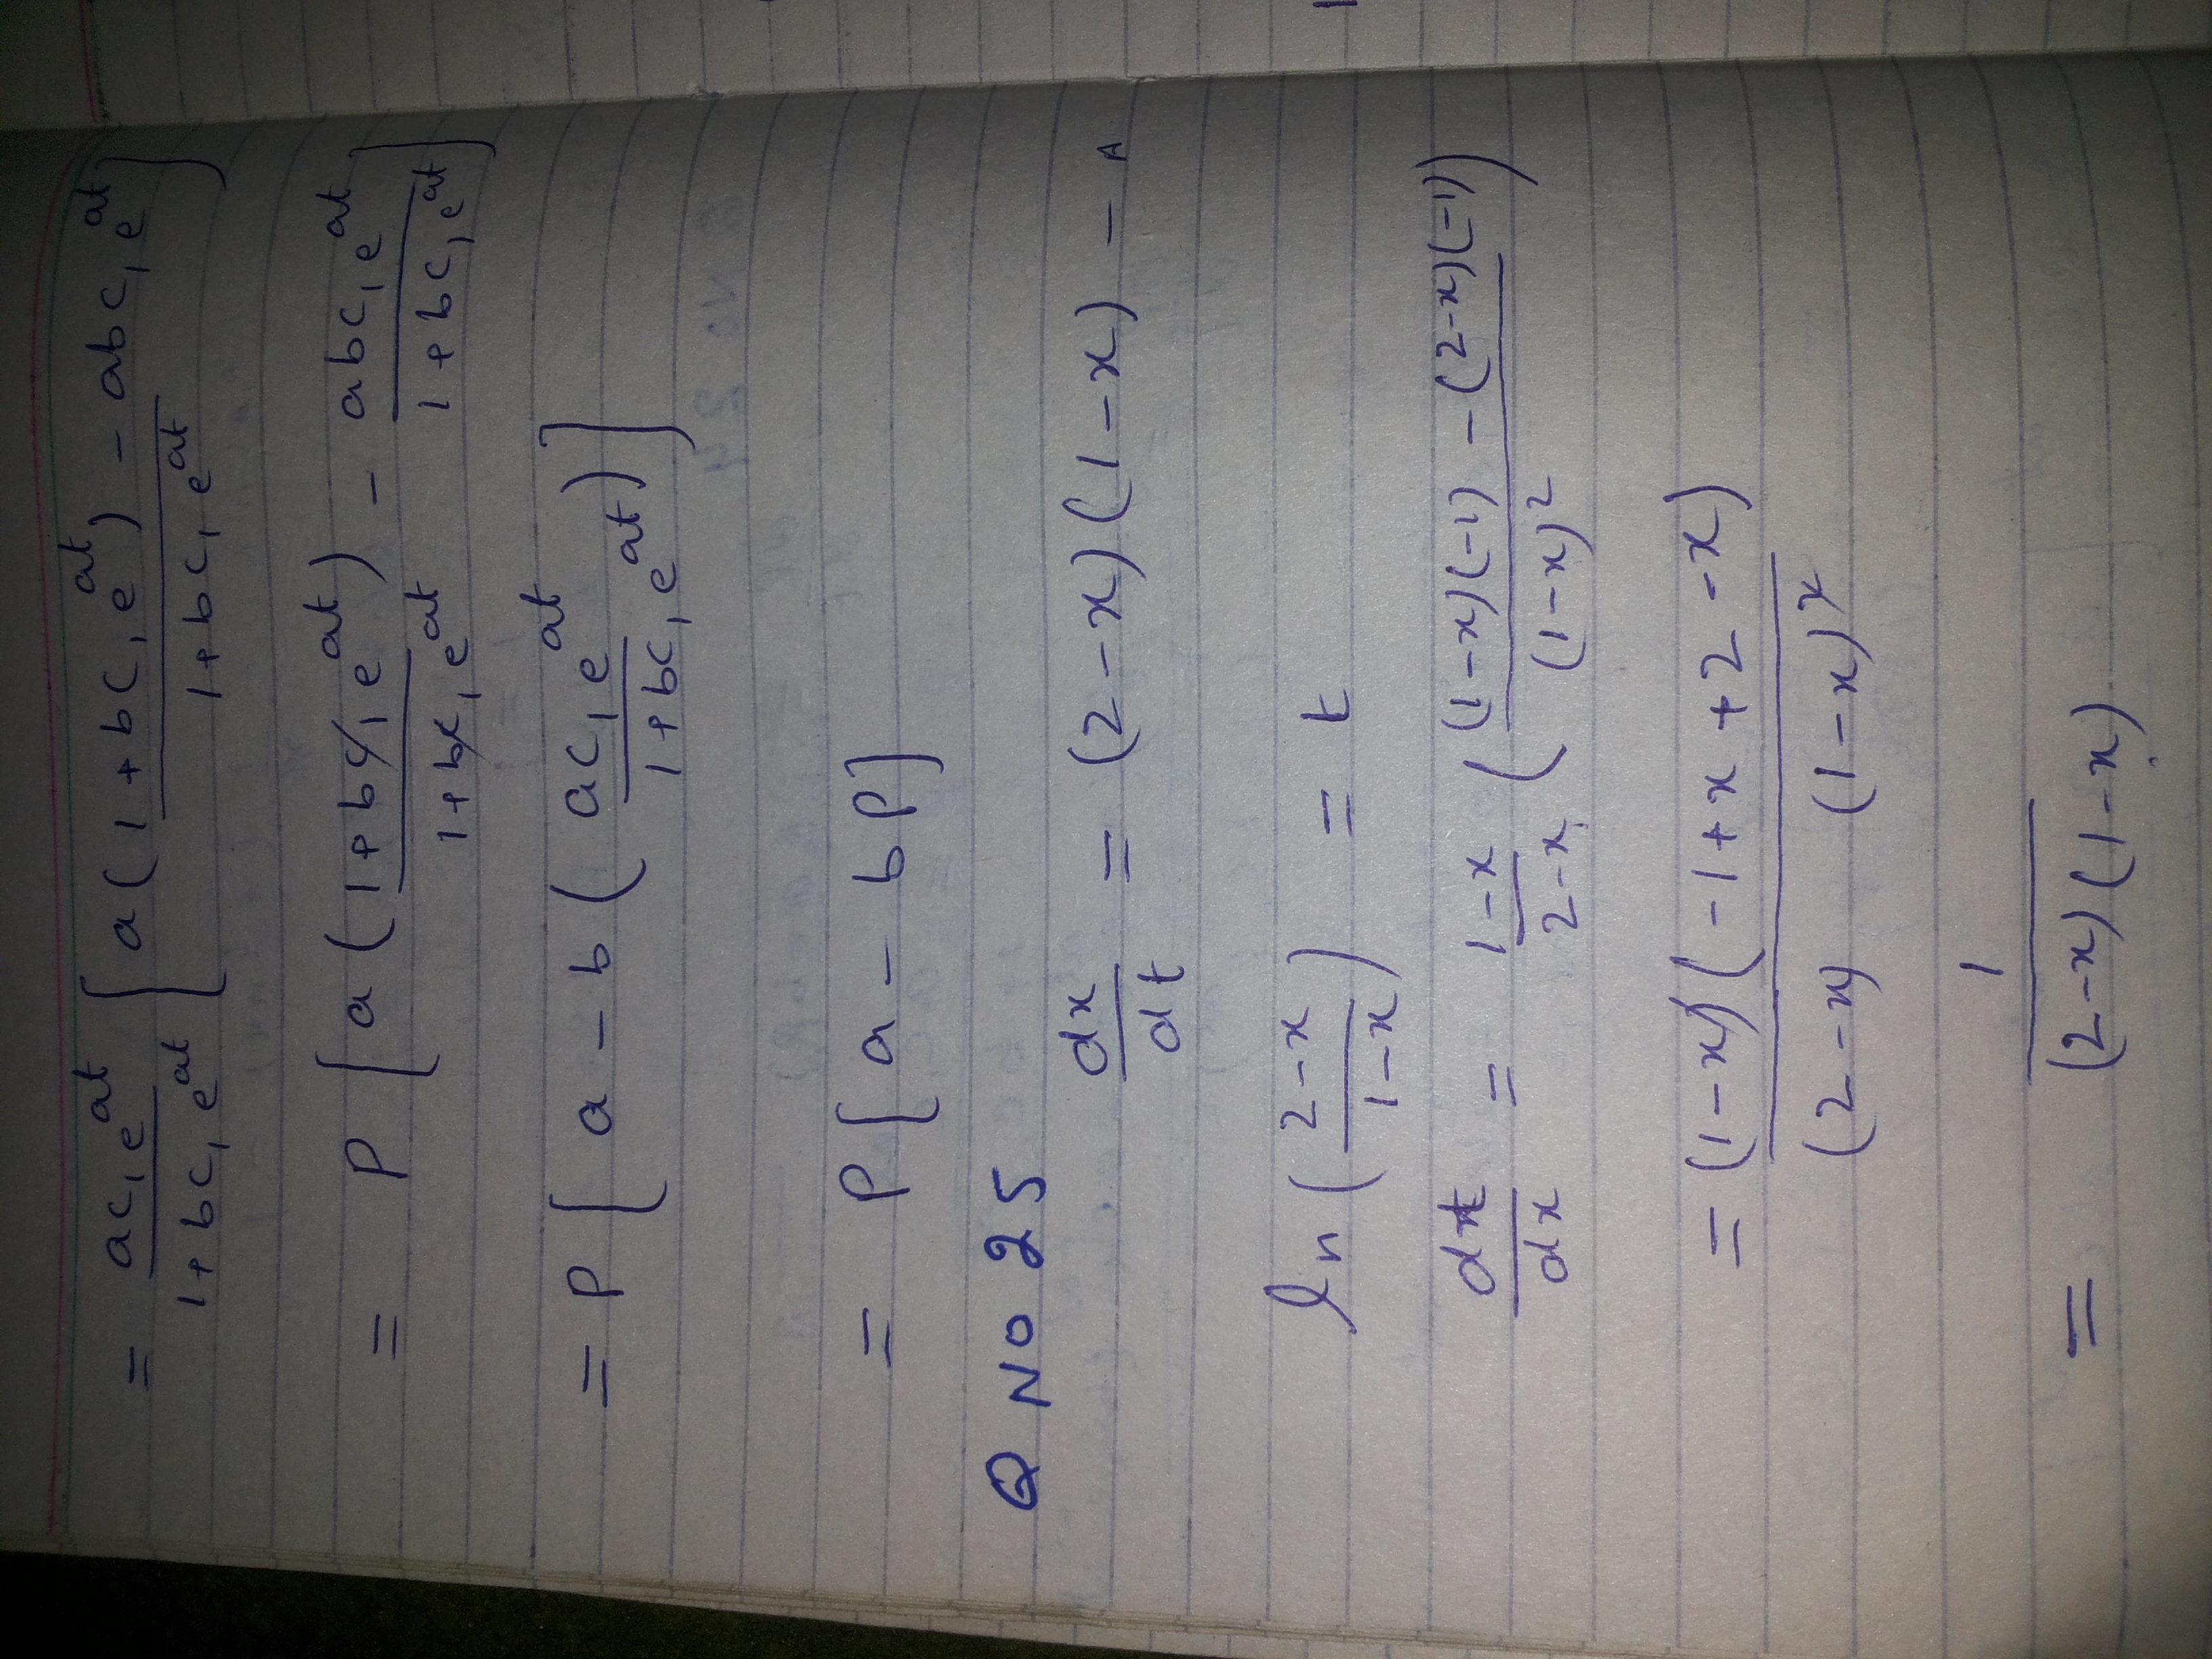 = ac₁e^at / 1+bc₁e^at [ a(1+bc₁e^at) - abc₁e^at / 1+bc₁e^at ]
= P [ a(1+bc₁e^at) / 1+bc₁e^at - abc₁e^at / 1+bc₁e^at ]
= P [ a - b ( ac₁e^at / 1+bc₁e^at ) ]
= P [ a - bP ]
Q NO 25
dx/dt = (2-x)(1-x) - A
ln ( 2-x / 1-x ) = t
dt/dx = 1-x / 2-x ( (1-x)(-1) - (2-x)(-1) / (1-x)² )
= (1-x)(-1+x+2-x) / (2-x) (1-x)²
= 1 / (2-x)(1-x)